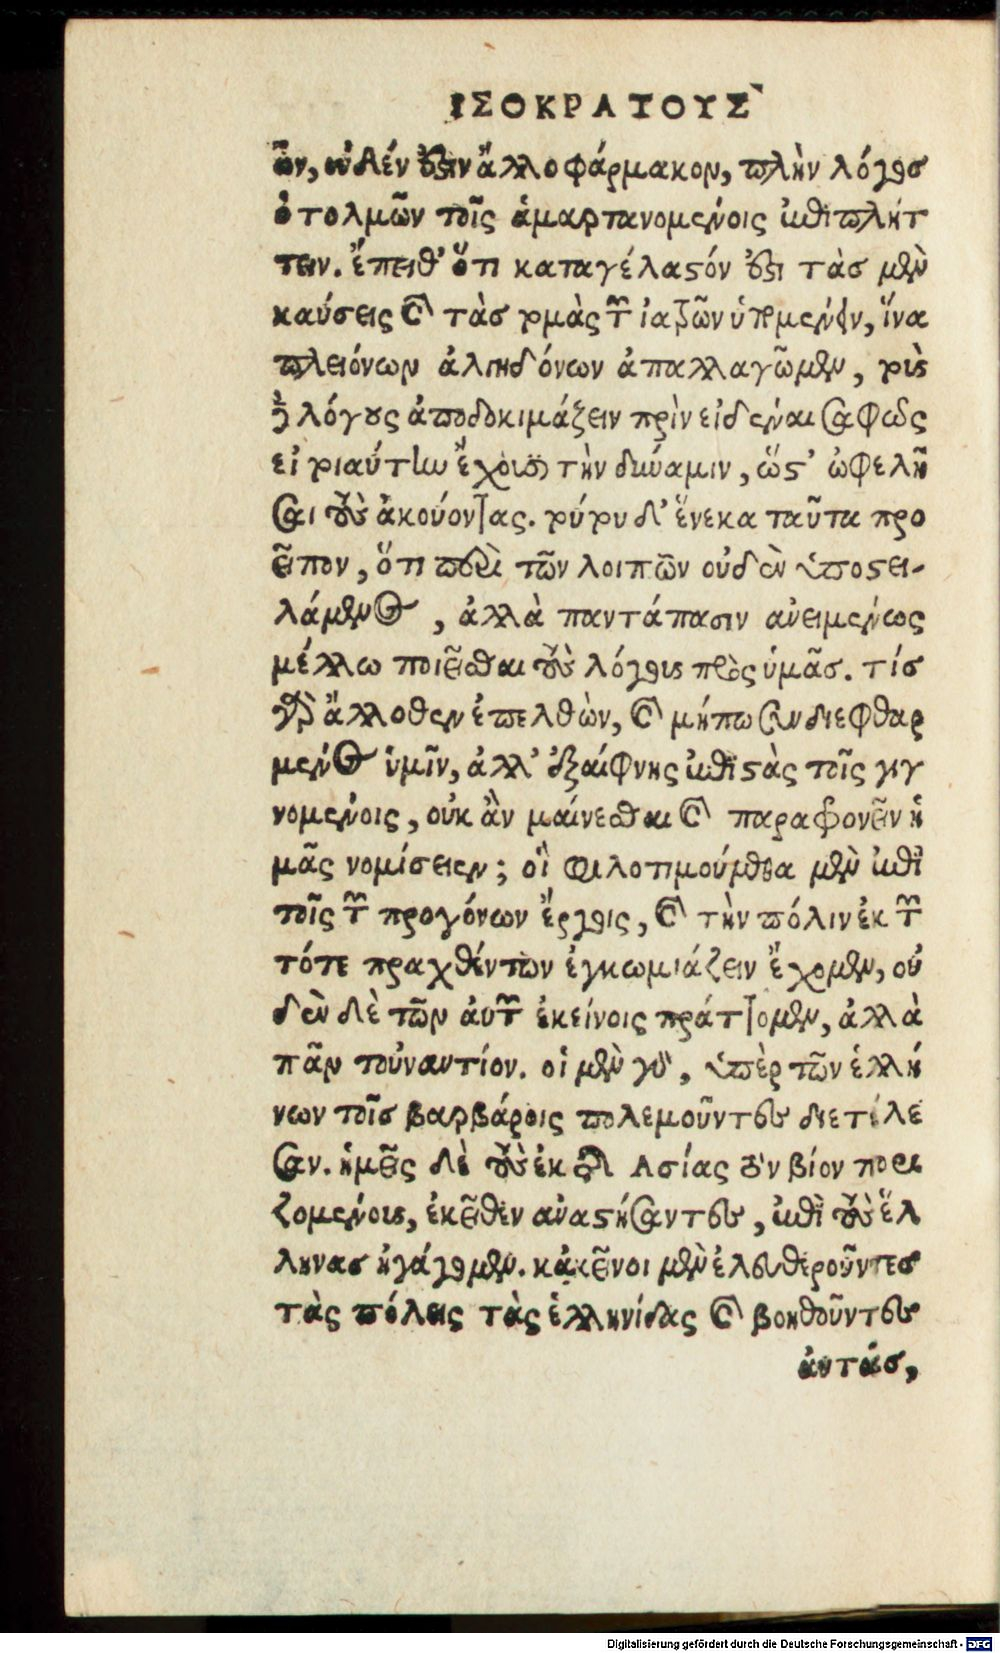 ΙΣΟΚΡΑΤΟΥΣ
ὧν, οὐδέν ἐστιν ἄλλο φάρμακον, πλὴν λόγος
ὁ τολμῶν τοῖς ἁμαρτανομένοις ἐπιπλήτ
τειν. ἔπειθ' ὅτι καταγέλαστόν ἐστι τὰς μὲν
καύσεις καὶ τὰς τομὰς τῶν ἰατρῶν ὑπομένειν, ἵνα
πλειόνων ἀλγηδόνων ἀπαλλαγῶμεν, τοὺς
δὲ λόγους ἀποδοκιμάζειν πρὶν εἰδέναι σαφῶς
εἰ τοιαύτην ἔχουσι τὴν δύναμιν, ὥστ' ὠφελῆ
σαι τοὺς ἀκούοντας. τούτου δ' ἕνεκα ταῦτα προ
εῖπον, ὅτι περὶ τῶν λοιπῶν οὐδὲν ὑποστει-
λάμενος, ἀλλὰ παντάπασιν ἀνειμένως
μέλλω ποιεῖσθαι τοὺς λόγους πρὸς ὑμᾶς. τίς
γὰρ ἄλλοθεν ἐπελθὼν, καὶ μήπω συνδιεφθαρ
μένος ὑμῖν, ἀλλ' ἐξαίφνης ἐπιστὰς τοῖς γιγ
νομένοις, οὐκ ἂν μαίνεσθαι καὶ παραφρονεῖν ἡ
μᾶς νομίσειεν; οἳ φιλοτιμούμεθα μὲν ἐπὶ
τοῖς τῶν προγόνων ἔργοις, καὶ τὴν πόλιν ἐκ τῶν
τότε πραχθέντων ἐγκωμιάζειν ἔχομεν, οὐ
δὲν δὲ τῶν αὐτῶν ἐκείνοις πράττομεν, ἀλλὰ
πᾶν τοὐναντίον. οἱ μὲν γὰρ, ὑπὲρ τῶν ἑλλή
νων τοῖς βαρβάροις πολεμοῦντες διετέλε
σαν. ἡμεῖς δὲ τοὺς ἐκ τῆς Ασίας τὸν βίον πορι
ζομένους, ἐκεῖθεν ἀναστήσαντες, ἐπὶ τοὺς ἕλ
ληνας ἠγάγομεν. κἀκεῖνοι μὲν ἐλευθεροῦντες
τὰς πόλεις τὰς ἑλληνίδας καὶ βοηθοῦντες
ἀυτάς,
Digitalisierung gefördert durch die Deutsche Forschungsgemeinschaft - DFG